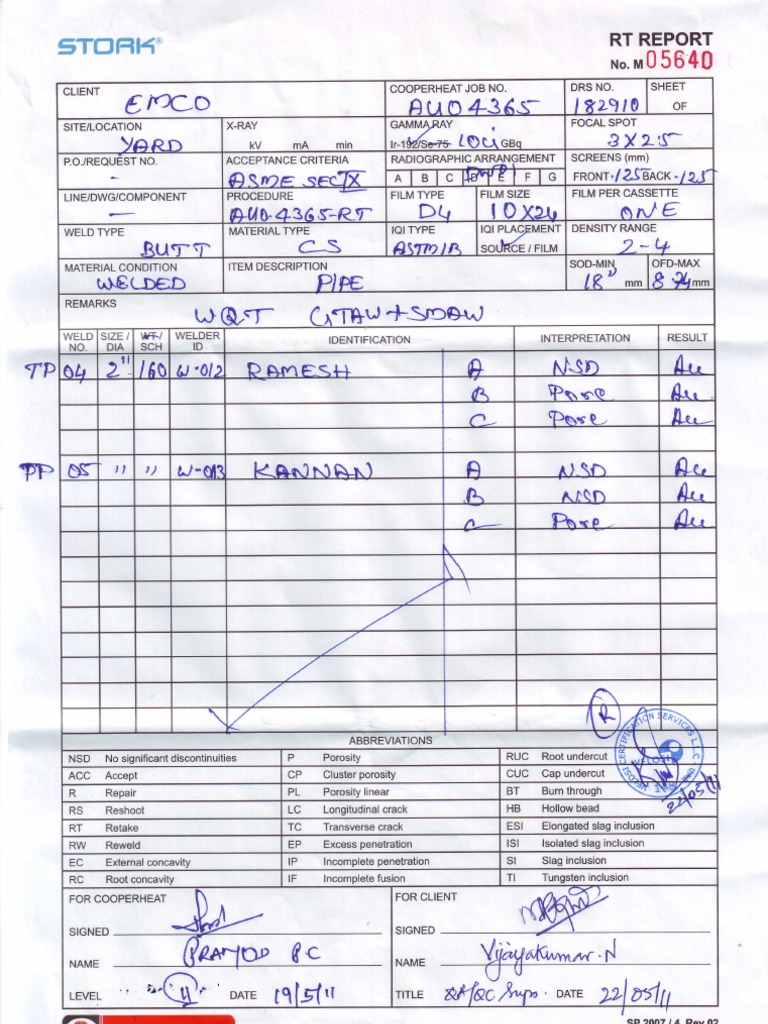 STORK®
RT REPORT
No. M 05640
CLIENT EMCO
COOPERHEAT JOB NO. AU04365
DRS NO. 182910
SHEET OF
SITE/LOCATION YARD
X-RAY kV mA min
GAMMA RAY Ir-192/Se-75 10Ci GBq
FOCAL SPOT 3X2.5
P.O./REQUEST NO. -
ACCEPTANCE CRITERIA ASME SEC IX
RADIOGRAPHIC ARRANGEMENT A B C D E F G
SCREENS (mm) FRONT .125 BACK .125
LINE/DWG/COMPONENT —
PROCEDURE AU0-4365-RT
FILM TYPE D4
FILM SIZE 10X24
FILM PER CASSETTE ONE
WELD TYPE BUTT
MATERIAL TYPE CS
IQI TYPE ASTM1B
IQI PLACEMENT SOURCE / FILM
DENSITY RANGE 2-4
MATERIAL CONDITION WELDED
ITEM DESCRIPTION PIPE
SOD-MIN 18" mm
OFD-MAX 8.74 mm
REMARKS WQT GTAW+SMAW
WELD NO. SIZE / DIA WT / SCH WELDER ID IDENTIFICATION INTERPRETATION RESULT
TP 04 2" 160 W-012 RAMESH A NSD Acc
B Pore Acc
C Pore Acc
PP 05 " " W-013 KANNAN A NSD Acc
B NSD Acc
C Pore Acc
R
VELOSI CERTIFICATION SERVICES L.L.C
VELOSI
22/05/11
ABBREVIATIONS
NSD No significant discontinuities P Porosity RUC Root undercut
ACC Accept CP Cluster porosity CUC Cap undercut
R Repair PL Porosity linear BT Burn through
RS Reshoot LC Longitudinal crack HB Hollow bead
RT Retake TC Transverse crack ESI Elongated slag inclusion
RW Reweld EP Excess penetration ISI Isolated slag inclusion
EC External concavity IP Incomplete penetration SI Slag inclusion
RC Root concavity IF Incomplete fusion TI Tungsten inclusion
FOR COOPERHEAT
FOR CLIENT
SIGNED
SIGNED
NAME PRAMOD P C
NAME Vijayakumar.N
LEVEL II DATE 19/5/11
TITLE QA/QC Supv. DATE 22/05/11
SP 2007 / 4 Rev 02